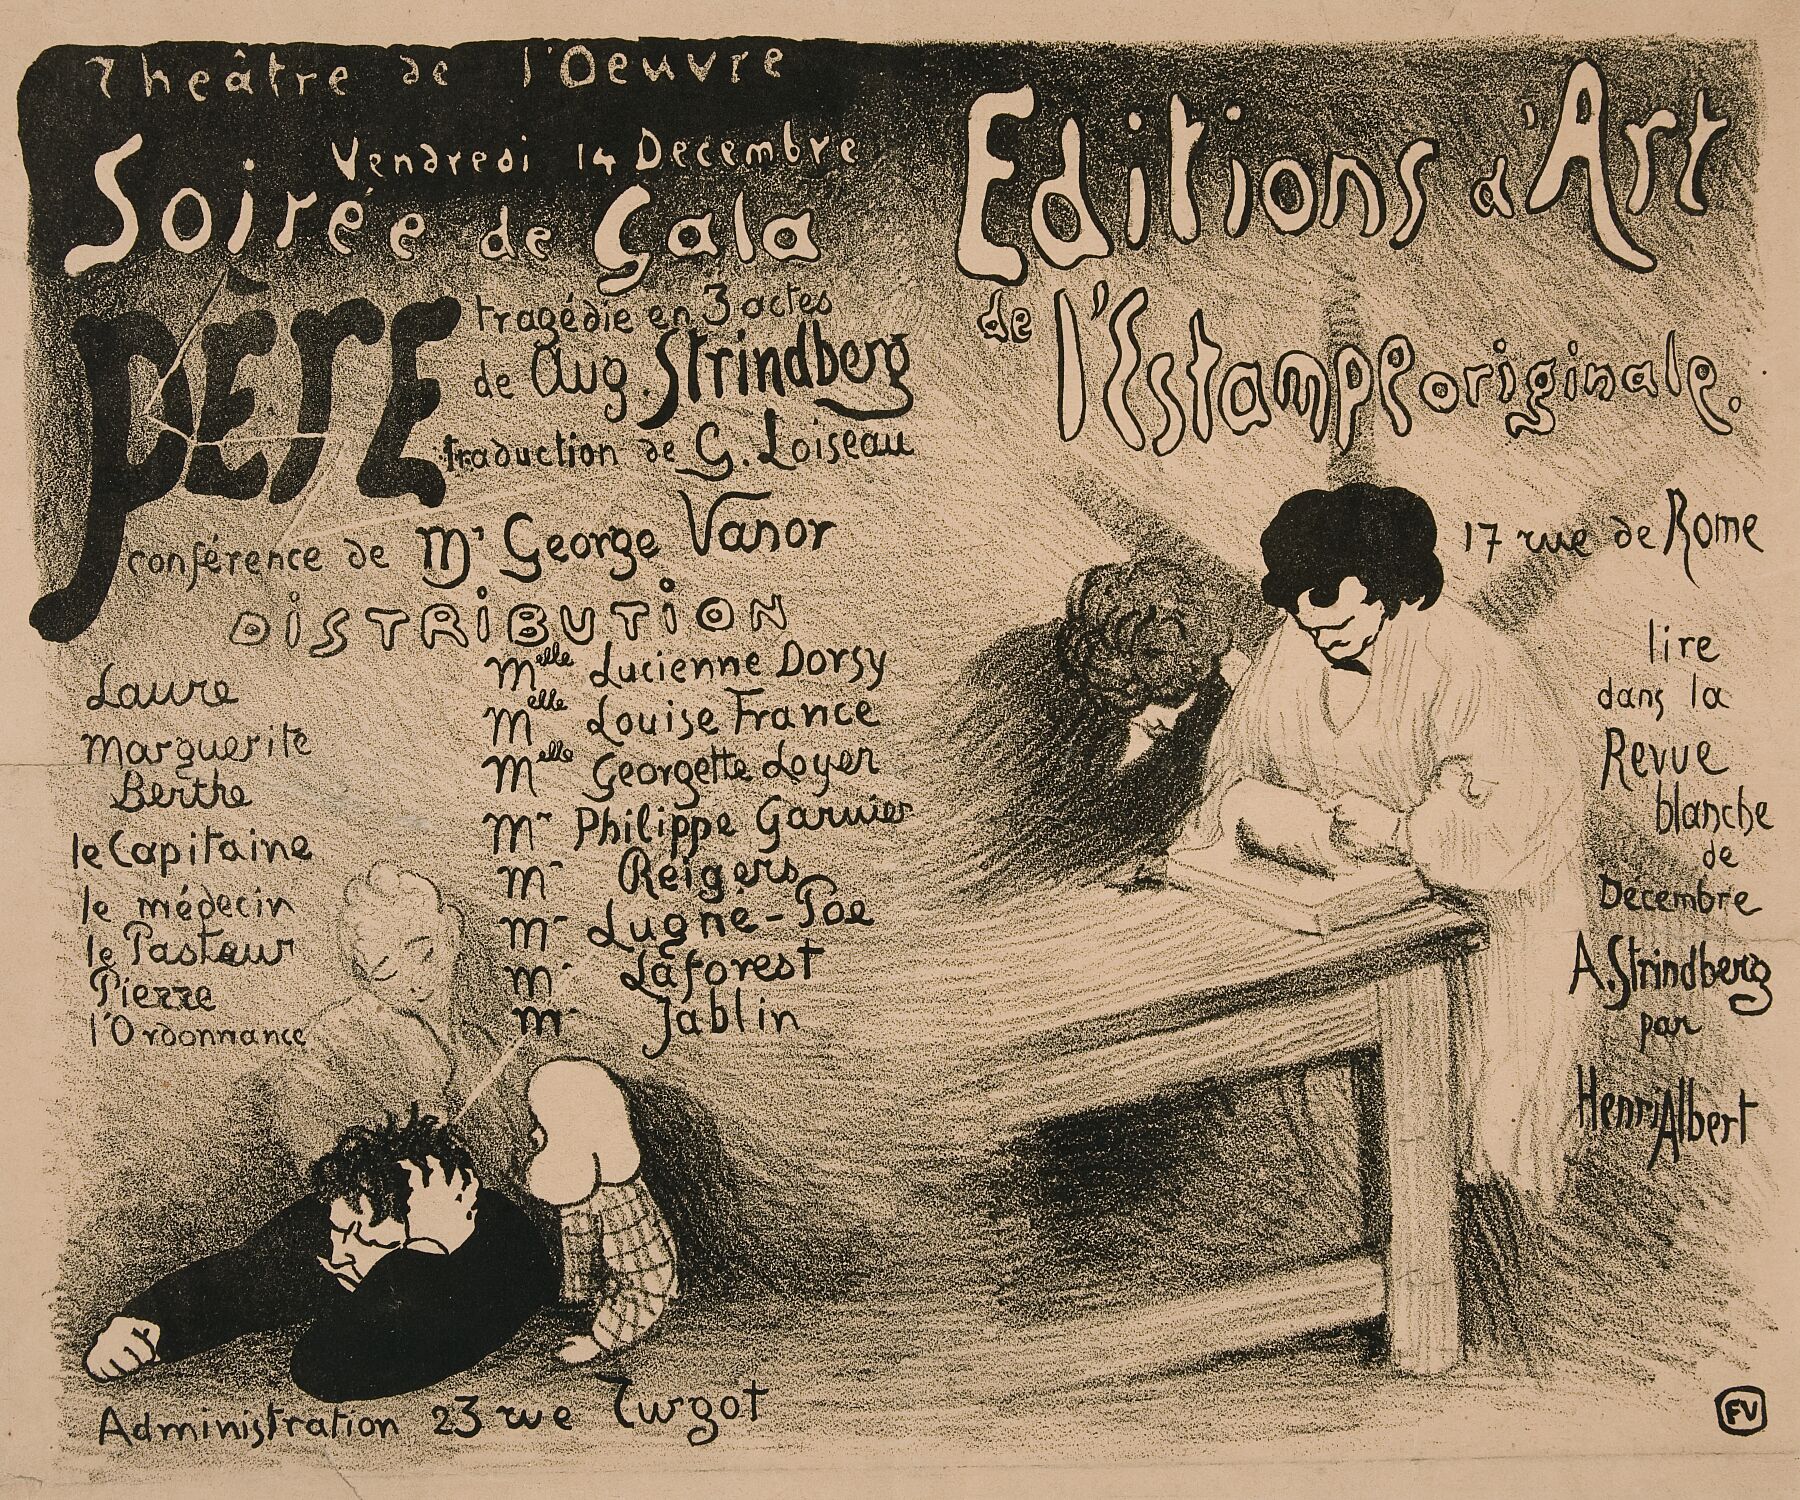 Theâtre de l'Oeuvre
Vendredi 14 Decembre
Soirée de Gala
PÈrE
tragédie en 3 actes
de Aug. Strindberg
traduction de G. Loiseau
conférence de Mr George Vanor
DiSTRiBUTiON
Laure Melle Lucienne Dorsy
Marguerite Melle Louise France
Berthe Melle Georgette Loyer
le Capitaine Mr Philippe Garnier
le médecin Mr Reigers
le Pasteur Mr Lugne-Poe
Pierre Mr Laforest
l'Ordonnance Mr Jablin
Administration 23 rue Turgot
Editions d'Art
de l'Estampe originale.
17 rue de Rome
lire
dans la
Revue
blanche
de
Decembre
A. Strindberg
par
Henri Albert
FV